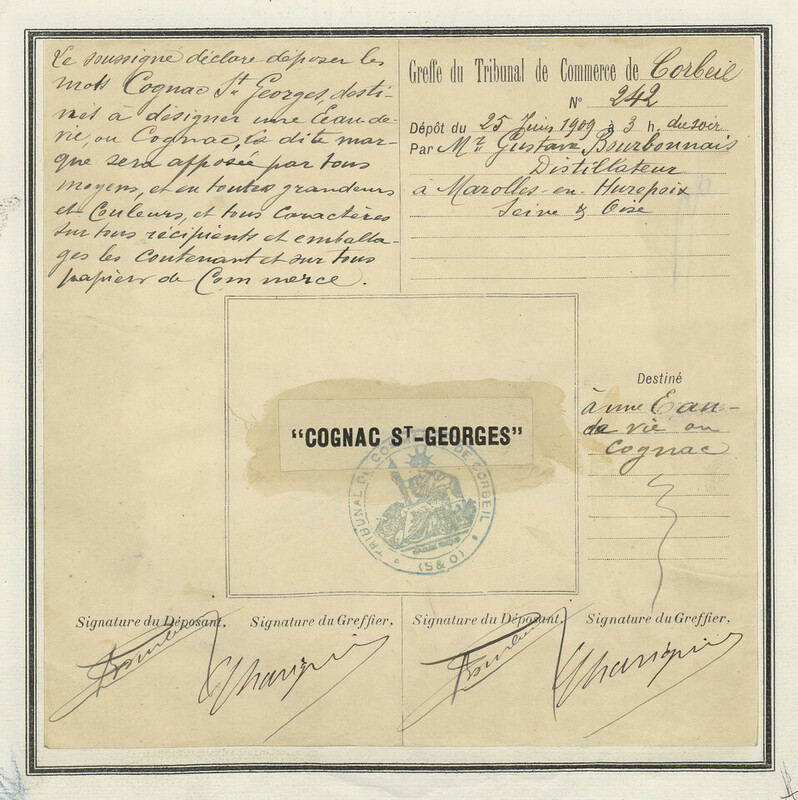 Le soussigné déclare déposer les
mots Cognac St Georges, desti-
nés à désigner une Eau de
vie, ou Cognac, la dite mar-
que sera apposée par tous
moyens, et en toutes grandeurs
et Couleurs, et tous caractères
sur tous récipients et emballa-
ges les contenant et sur tous
papiers de Commerce.
Greffe du Tribunal de Commerce de Corbeil
N° 242
Dépôt du 25 Juin 1909 à 3 h. du soir
Par Mr Gustave Bourbonnais
Distillateur
à Marolles-en-Hurepoix
Seine & Oise
"COGNAC ST-GEORGES"
TRIBUNAL DE COMMERCE DE CORBEIL
(S & O)
Destiné
à une Eau-
de vie ou
Cognac
Signature du Déposant. Signature du Greffier.
Signature du Déposant. Signature du Greffier.